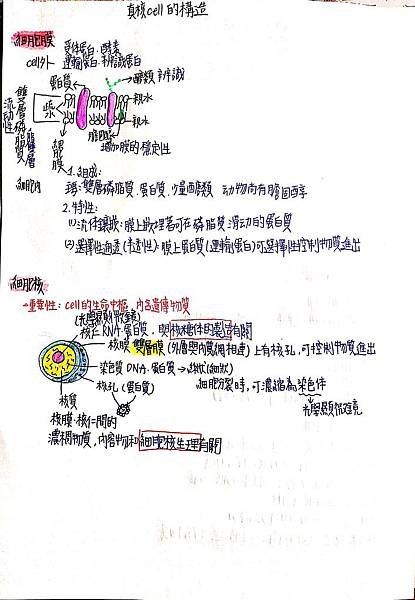 真核cell的構造
細胞膜
受体蛋白.酵素
cell外 運輸蛋白.辨識蛋白
蛋白質
醣類 辨識
親水
疏水
親水
膽固醇
增加膜的穩定性
流動性
雙層磷脂質
細胞膜
細胞內
1.組成:
雙層磷脂質.蛋白質.少量醣類 動物尚有膽固醇
2.特性:
(1)流体鑲嵌:膜上嵌埋著可在磷脂質滑動的蛋白質
(2)選擇性通透(半透性):膜上蛋白質(運輸蛋白)可選擇性控制物質進出
細胞核
→重要性:cell的生命中樞,內含遺傳物質
核仁 RNA.蛋白質. 與核糖体的製造有關
核膜 雙層膜(外層與內質網相連)上有核孔,可控制物質進出
染色質 DNA.蛋白質→絲狀(細狀)
核孔(蛋白質) 細胞分裂時,可濃縮為染色体
核質
光學顯微鏡
核膜.核仁間的
濃稠物質,內容物和細胞核生理有關